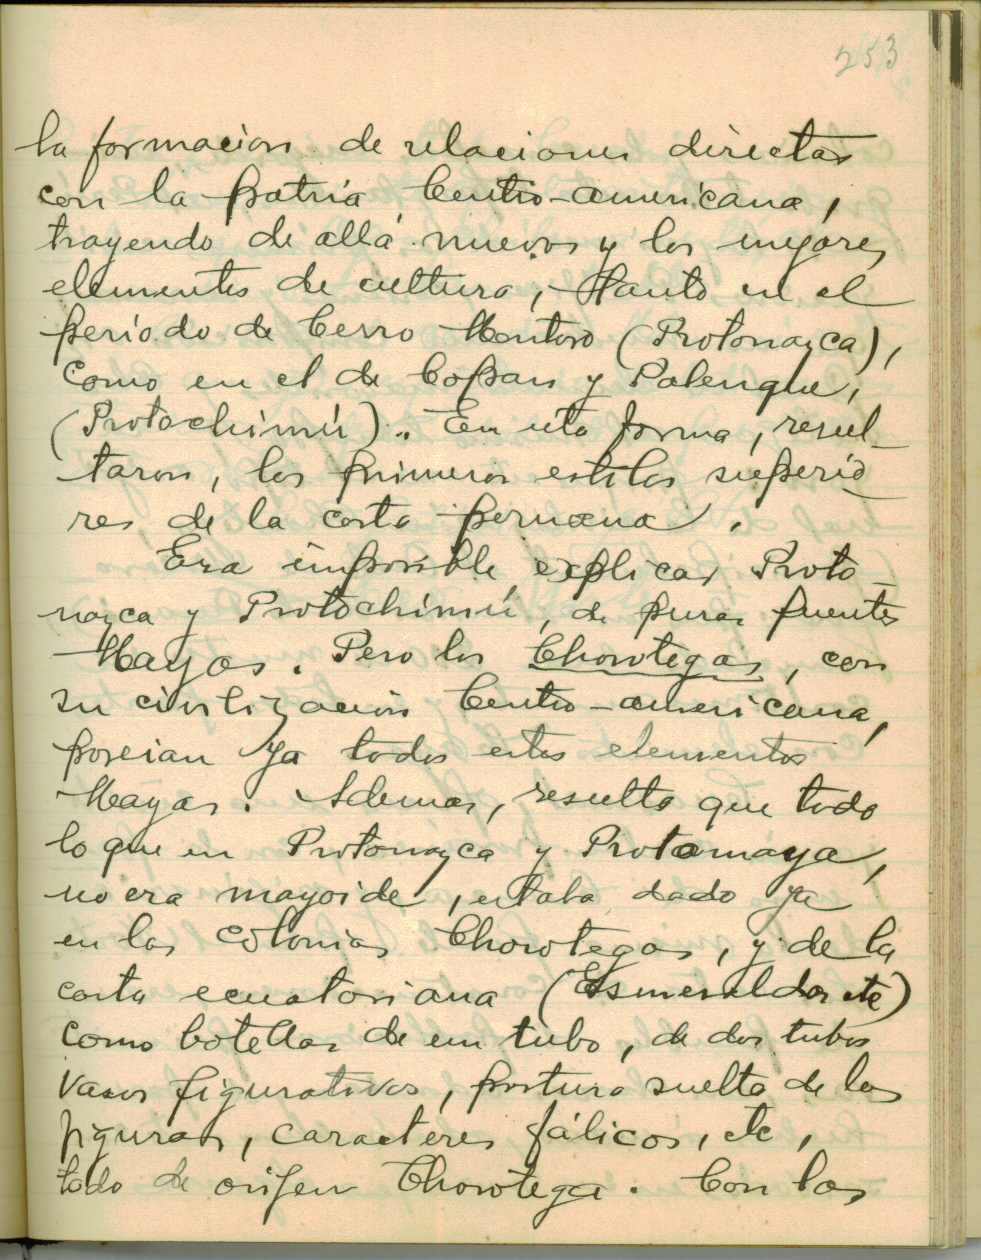 253
la formacion de relaciones directas
con la patria Centro-americana,
trayendo de allá nuevos y los mejores
elementos de cultura, tanto en el
periodo de Cerro Montoso (Protonazca),
como en el de Copan y Palenque,
(Protochimú). En esta forma, resul-
taron, los primeros estilos superio-
res de la costa peruana.
Era imposible explicar Proto-
nazca y Protochimú, de puras fuentes
Mayas. Pero los Chorotegas, con
su civilizacion Centro-americana,
poseian ya todos estos elementos
Mayas. Ademas, resulta que todo
lo que en Protonazca y Protomaya,
no era mayoide, estaba dado ya
en las colonias Chorotegas, y de la
costa ecuatoriana (Esmeraldas etc)
como botellas de un tubo, de dos tubos
vasos figurativos, postura suelta de las
figuras, caracteres fálicos, etc,
todo de orijen Chorotega. Con las